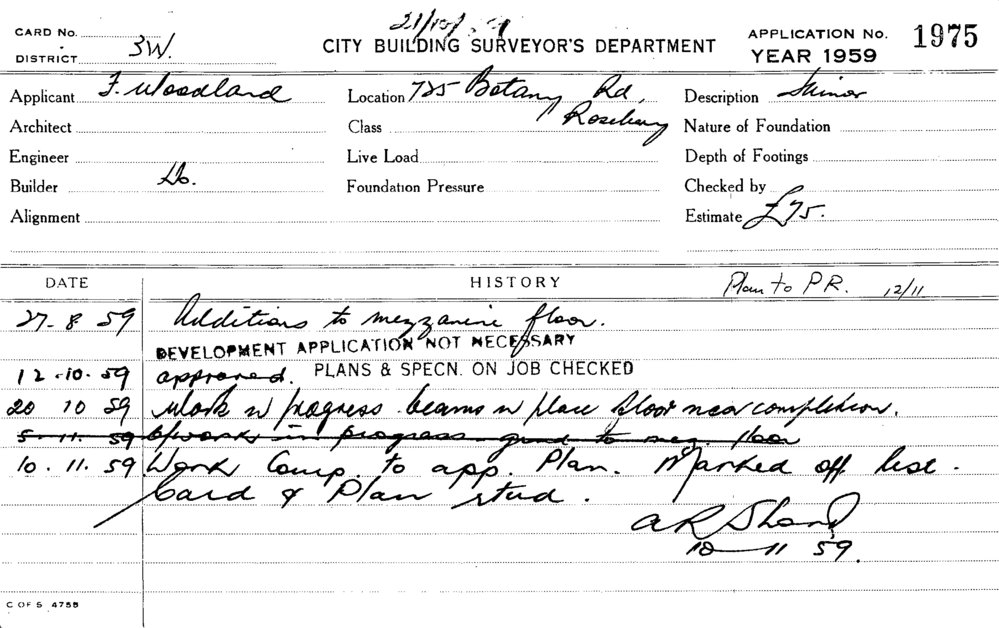 CARD No.
21/10/
CITY BUILDING SURVEYOR'S DEPARTMENT
APPLICATION No. 1975
DISTRICT 3W.
YEAR 1959
Applicant F. Woodland
Location 725 Botany Rd, Rosebery
Description Minor
Architect
Class
Nature of Foundation
Engineer
Live Load
Depth of Footings
Builder Do.
Foundation Pressure
Checked by
Alignment
Estimate £75.
DATE
HISTORY
Plan to P.R. 12/11
27-8 59 Additions to mezzanine floor.
DEVELOPMENT APPLICATION NOT NECESSARY
12-10-59 approved. PLANS & SPECN. ON JOB CHECKED
20 10 59 Work in progress beams in place floor near completion.
5-11-59 work in progress to mez. floor
10.11.59 Work Comp. to app. Plan. Marked off list.
Card & Plan
A R Shand
10-11 59.
C OF S 4755